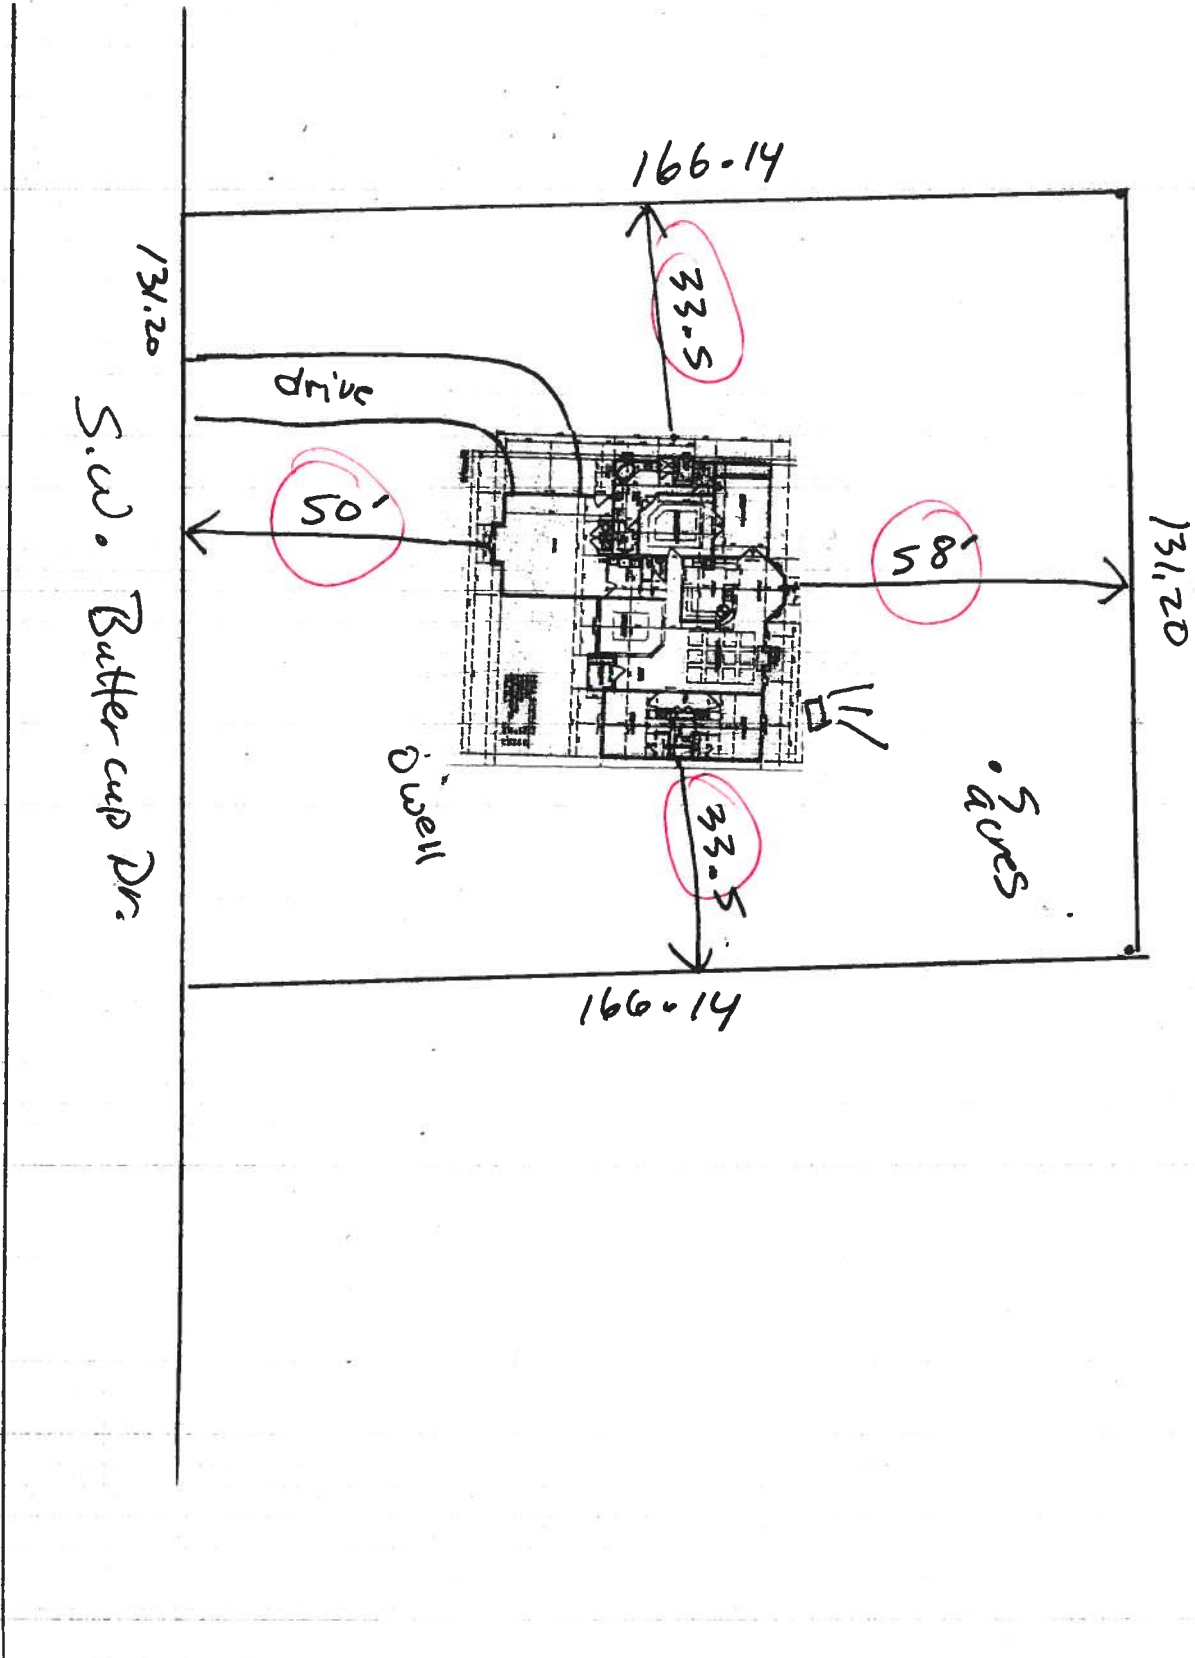 166.14
33.5
131.20
drive
50'
58'
131.20
S.W. Buttercup Dr.
well
.5
acres
33.5
166.14